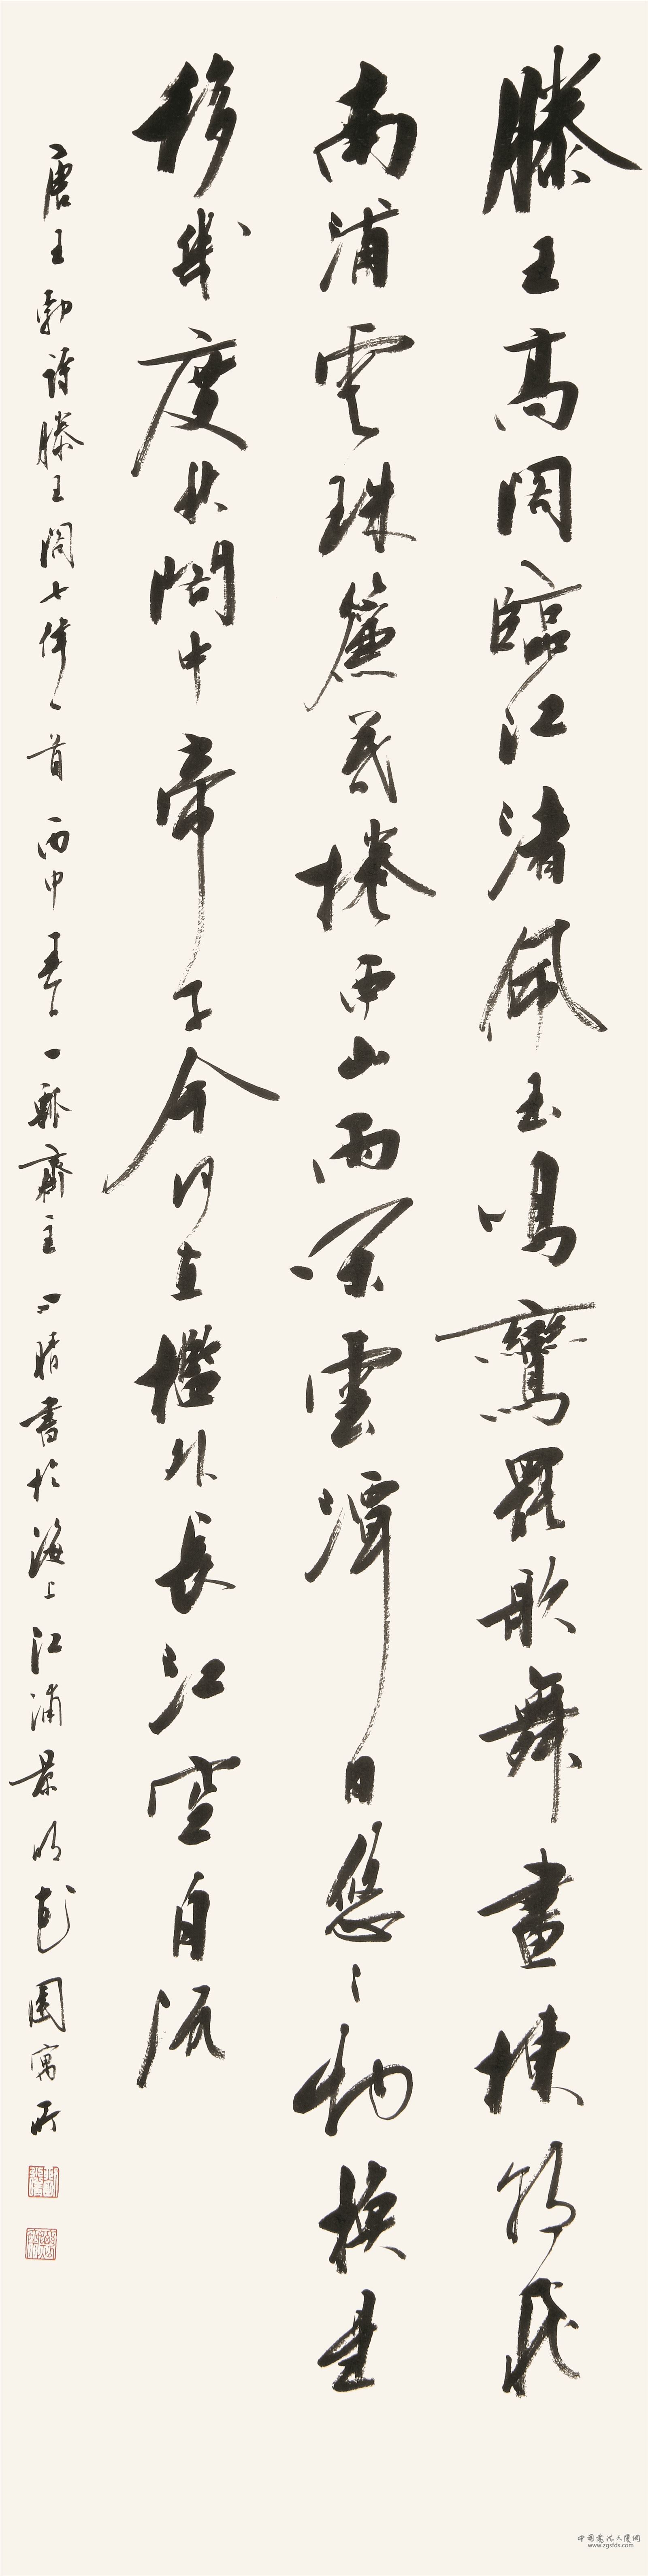 滕王高閣臨江渚佩玉鳴鸞罷歌舞畫棟朝飛
南浦雲珠簾暮捲西山雨閑雲潭日悠〻物換星
移幾度秋閣中帝子今何在檻外長江空自流
唐王勃詩滕王閣七律一首 丙申春 一齋主 晴書於海上江浦景明花園寓所
www.zgsfds.com